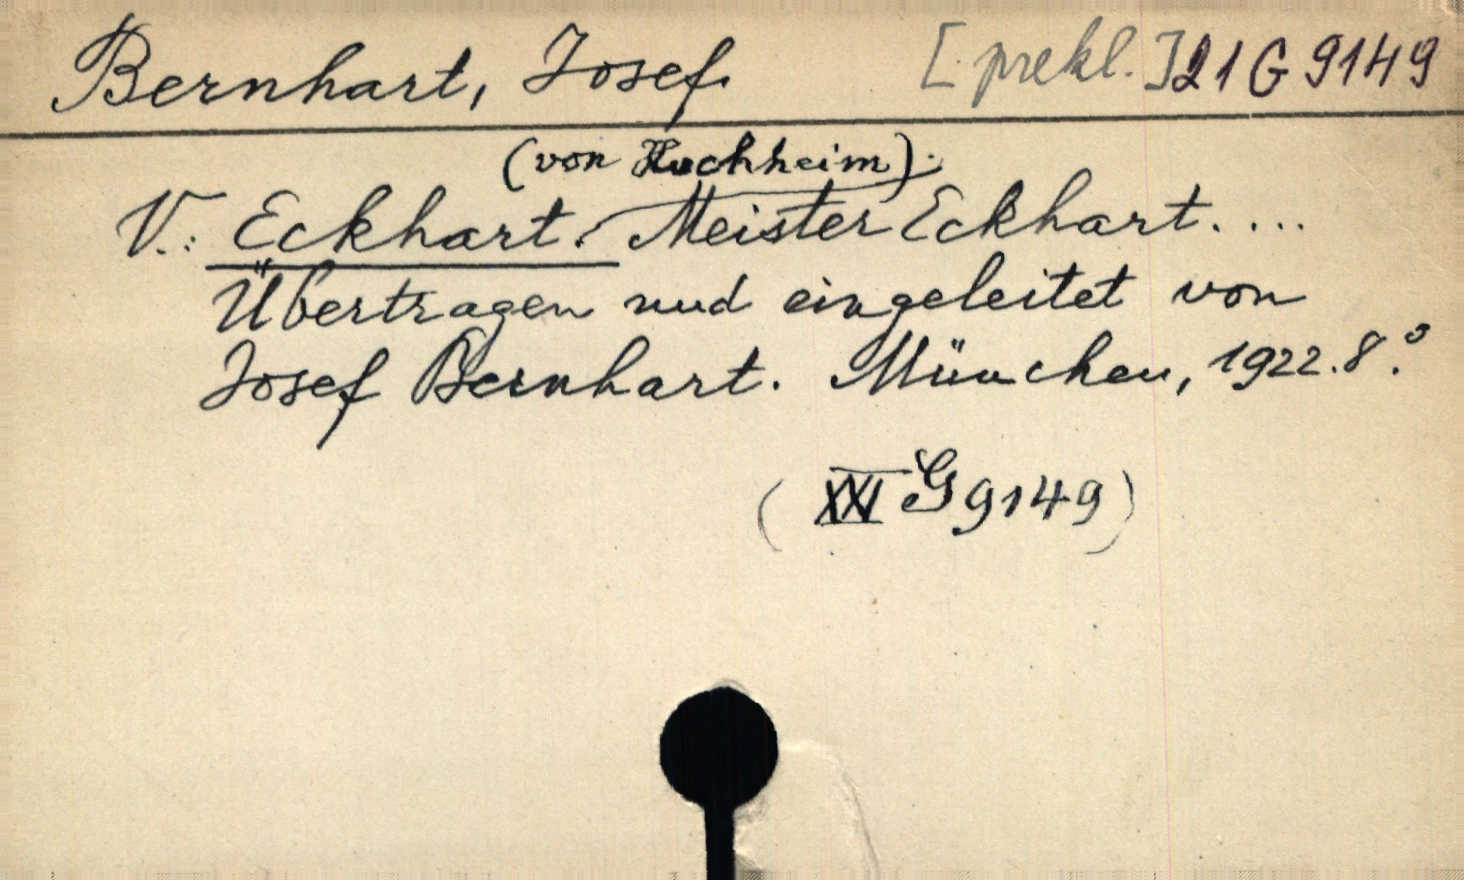 Bernhart, Josef. [prekl.] 21 G 9149
(von Hochheim).
V.: Eckhart. Meister Eckhart. ....
Übertragen und eingeleitet von
Josef Bernhart. München, 1922. 8°.
(XXI G 9149)